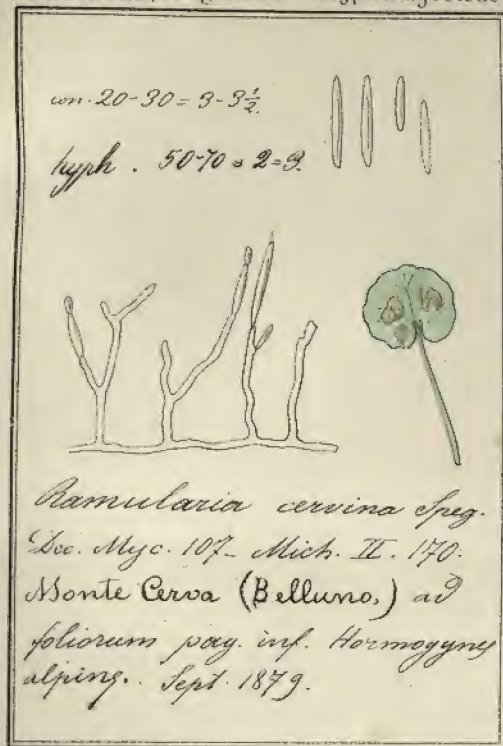 con. 20-30 = 3-3½.
hyph. 50-70 = 2=3.
Ramularia cervina Speg.
Dec. Myc. 107_ Mich. II. 170.
Monte Cerva (Belluno,) ad
foliorum pag. inf. Hormogynes
alping. Sept. 1879.